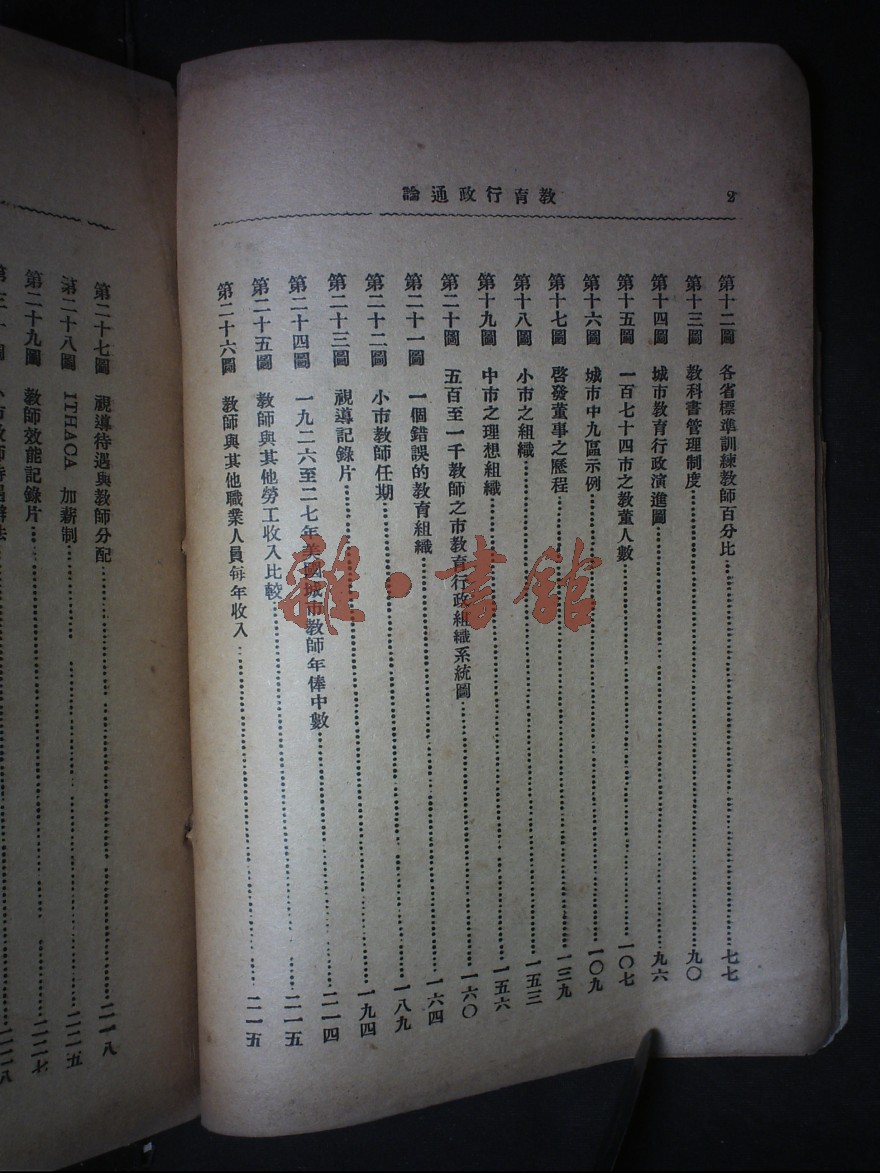 教育行政通論 2
第十二圖 各省標準訓練教師百分比 七七
第十三圖 教科書管理制度 九〇
第十四圖 城市教育行政演進圖 九六
第十五圖 一百七十四市之教董人數 一〇七
第十六圖 城市中九區示例 一〇九
第十七圖 啓發董事之歷程 一三九
第十八圖 小市之組織 一五三
第十九圖 中市之理想組織 一五六
第二十圖 五百至一千教師之市教育行政組織系統圖 一六〇
第二十一圖 一個錯誤的教育組織 一六四
第二十二圖 小市教師任期 一八九
第二十三圖 視導記錄片 一九四
第二十四圖 一九二六至二七年美國城市教師年俸中數 二一四
第二十五圖 教師與其他勞工收入比較 二一五
第二十六圖 教師與其他職業人員每年收入 二一五
第二十七圖 視導待遇與教師分配 二一八
第二十八圖 ITHACA 加薪制 二二五
第二十九圖 教師效能記錄片 二二七
雜·書館